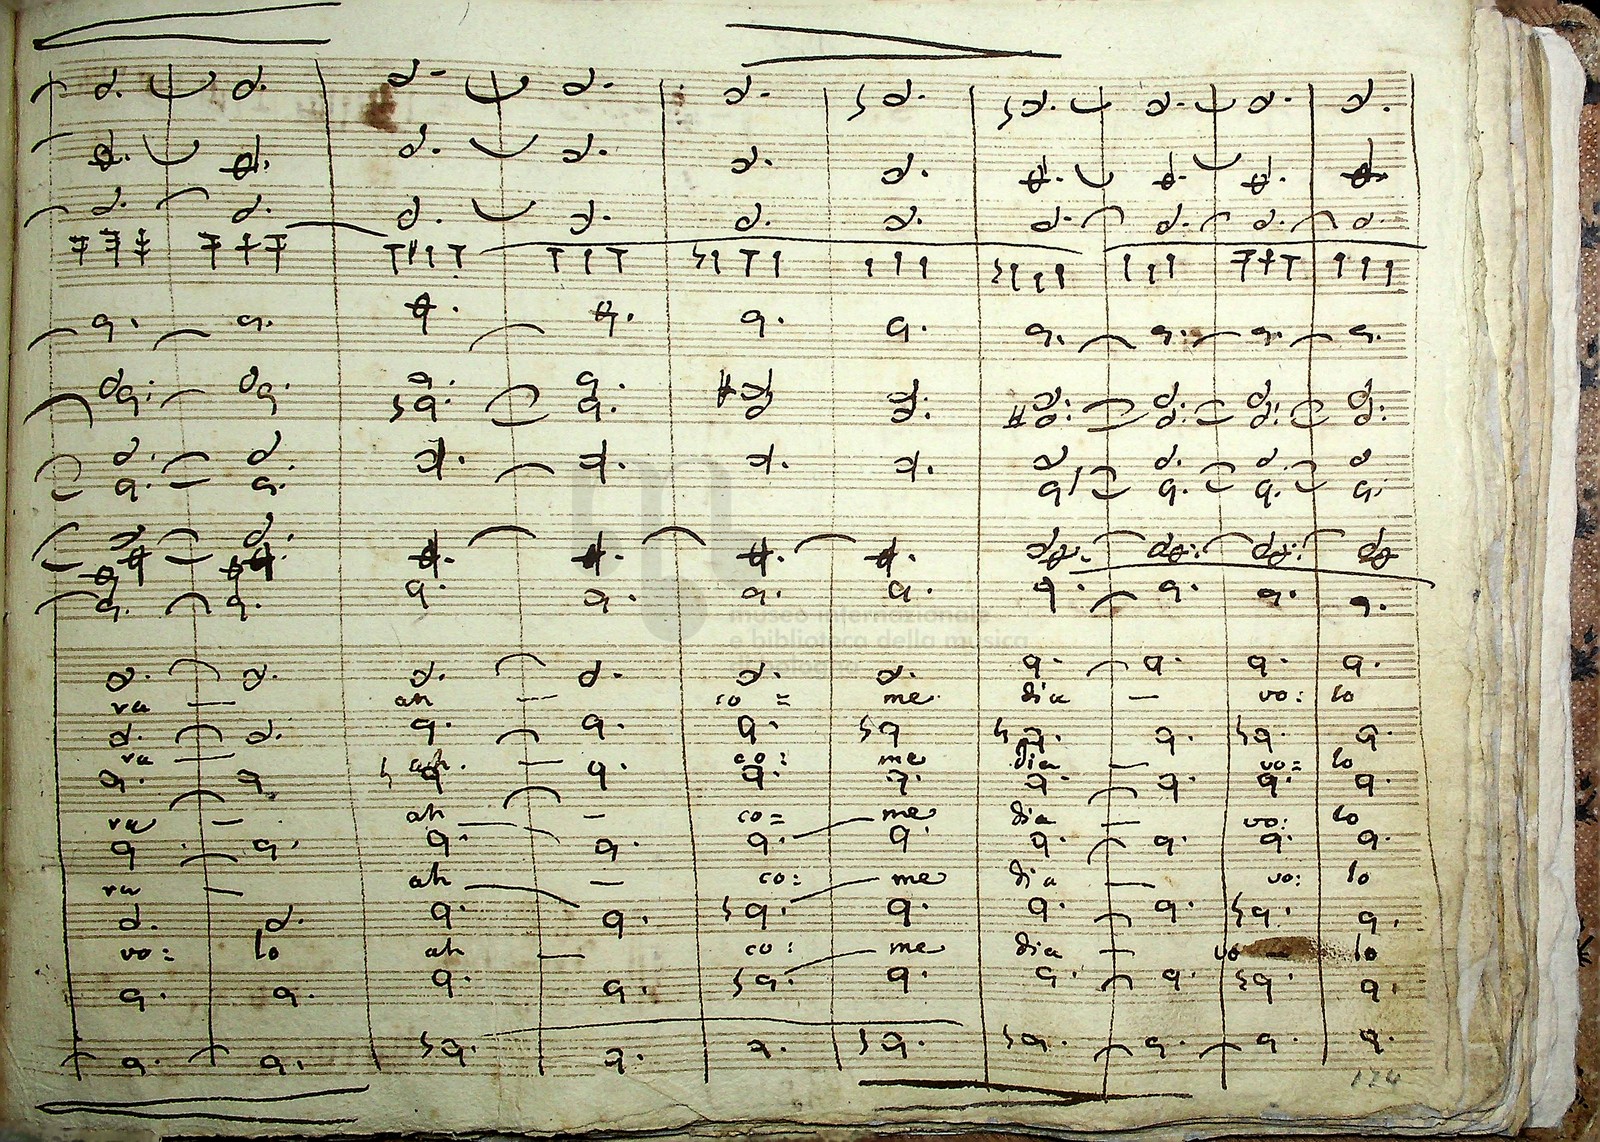 ra — ah — co = me dia — vo: lo
ra — ah. — co: me dia — vo= lo
ra — ah — co= me dia — vo: lo
ra — ah — co: me dia — vo: lo
vo: lo ah — co: me dia — vo — lo
museo internazionale
e biblioteca della musica
di bologna
124